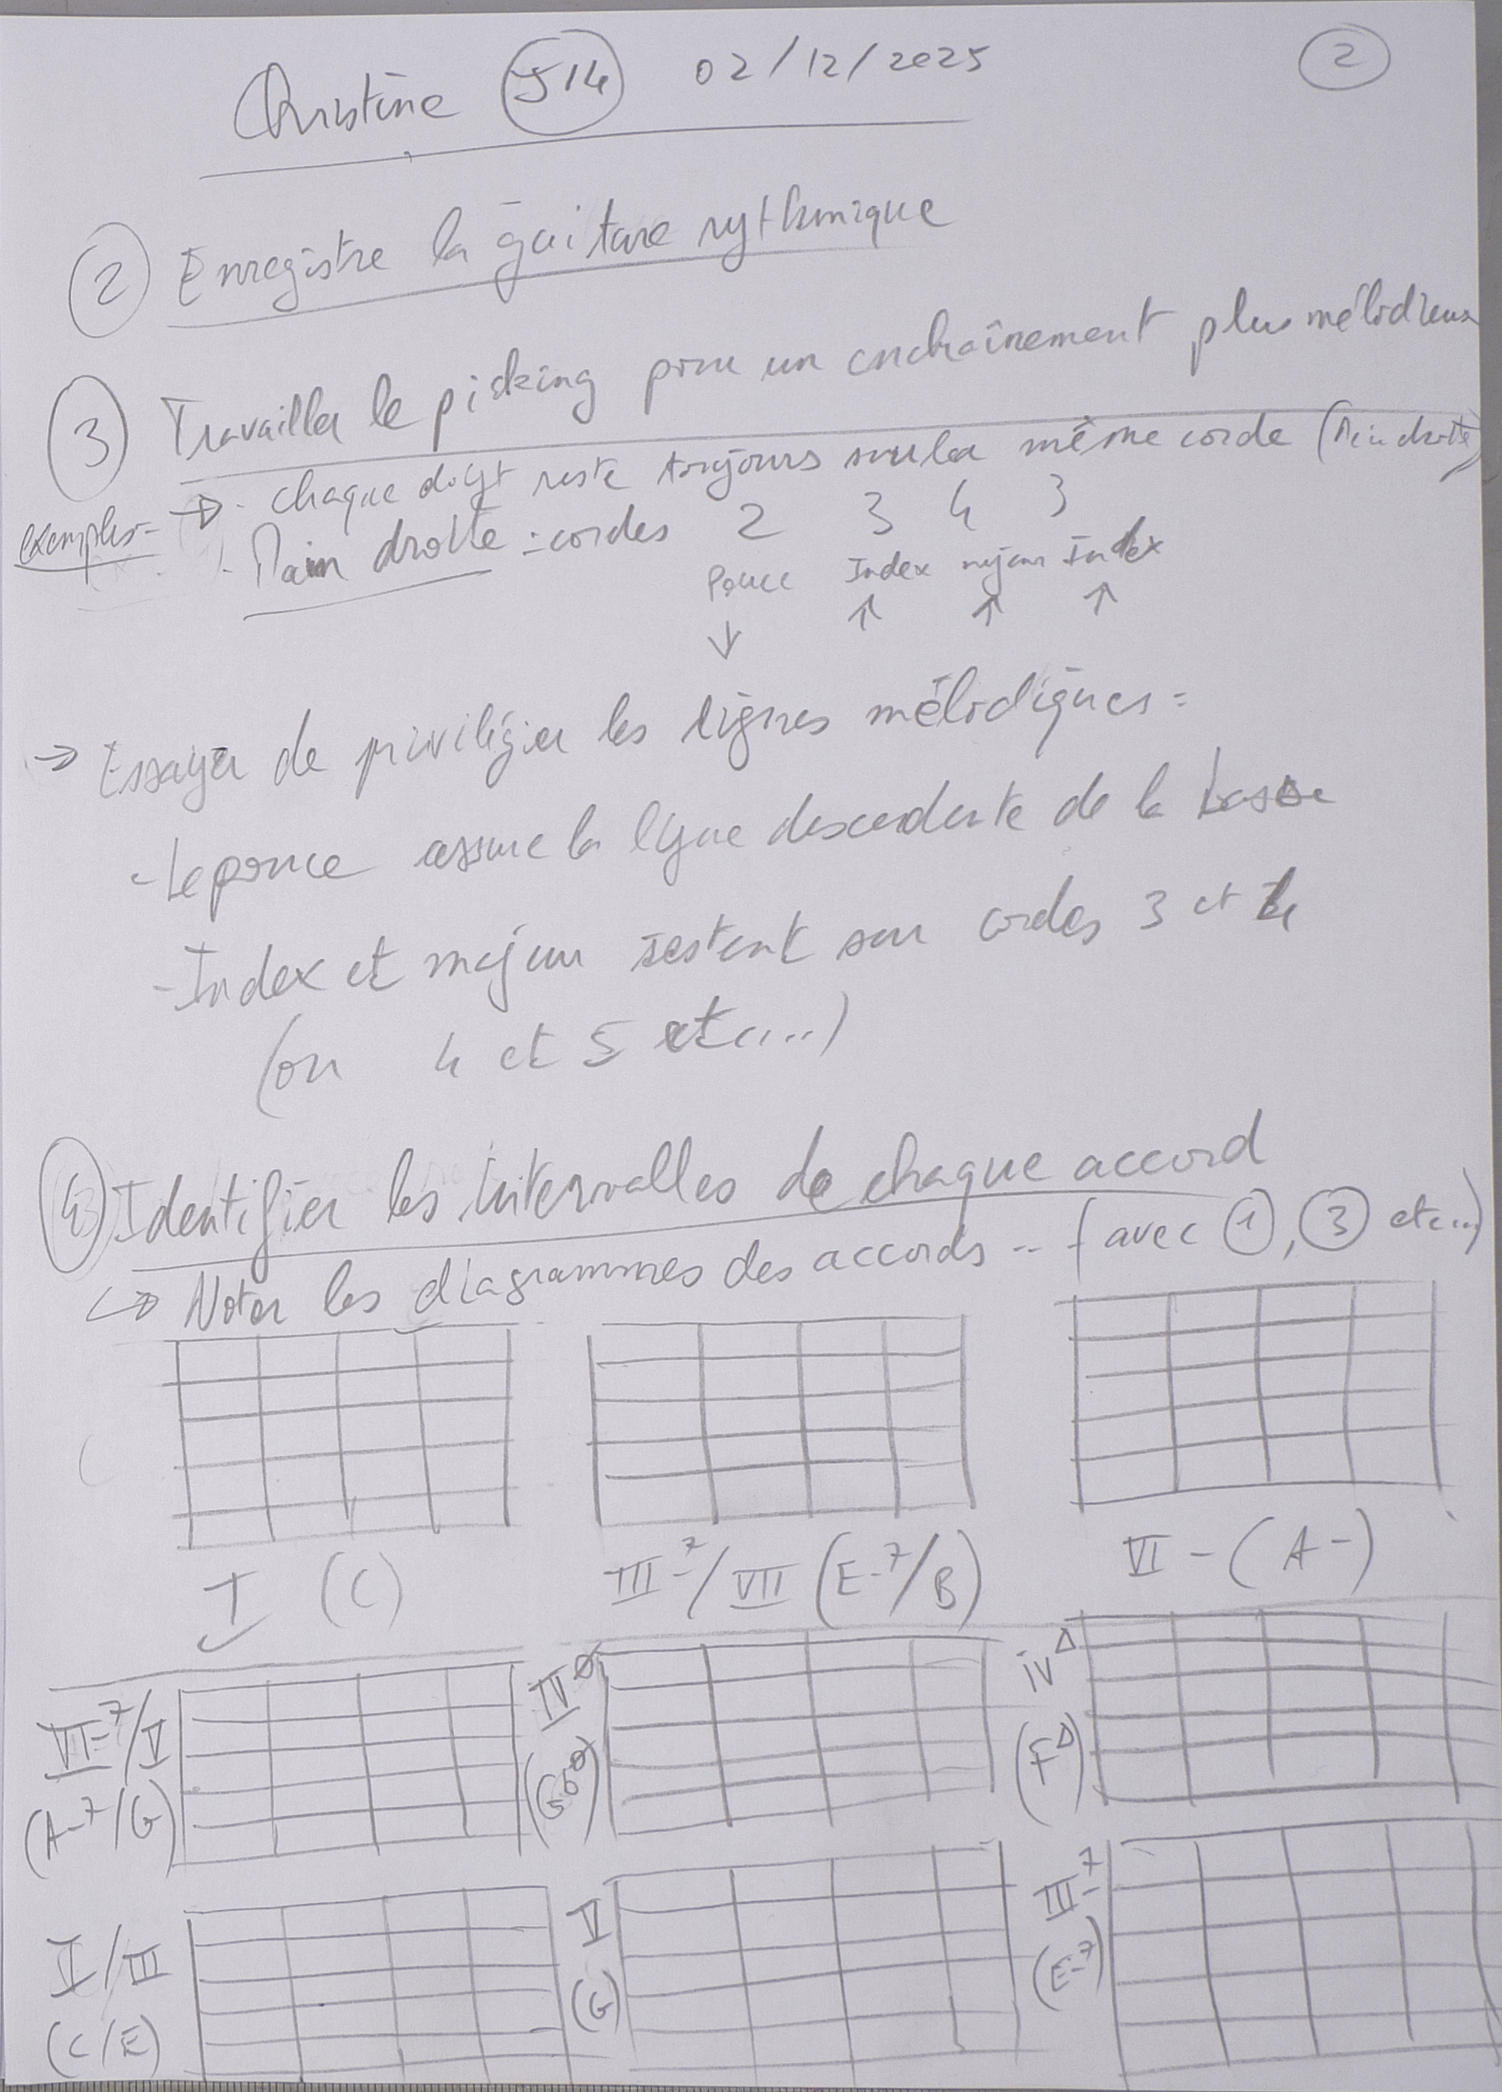 Christine J14 02/12/2025 2
2 Enregistre la guitare rythmique
3 Travailler le picking pour un enchaînement plus mélodieux
exemples = → - chaque doigt reste toujours sur la même corde (Main droite)
- Main droite : cordes 2 3 4 3
Pouce Index majeur Index
↓ ↑ ↑ ↑
→ Essayer de privilégier les lignes mélodiques =
- Le pouce assure la ligne descendante de la basse
- Index et majeur restent sur cordes 3 et 4
(ou 4 et 5 etc...)
4 Identifier les intervalles de chaque accord
↪ Noter les diagrammes des accords .. (avec 1, 3 etc...)
I (C)
III-7/VII (E-7/B)
VI- (A-)
VI-7/V
(A-7/G)
IVø
(Gbø)
IVΔ
(FΔ)
I/III
(C/E)
V
(G)
III-7
(E-7)